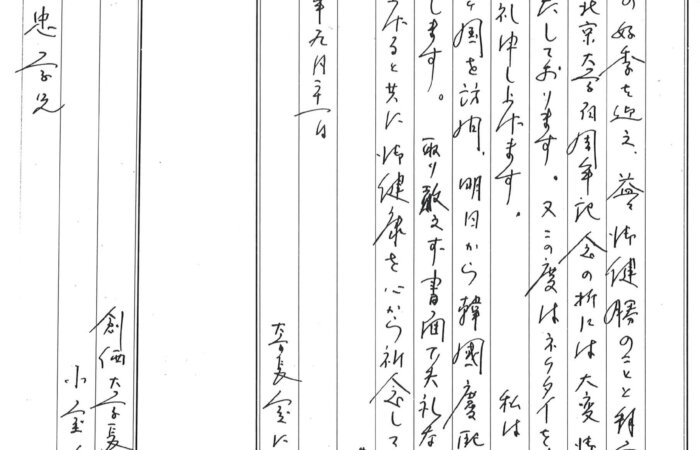 の好季を迎え、益々御健勝のことと拝
北京大学百周年記念の折には大変
たしております。又この度はネクタイを
礼申し上げます。 私は
国を訪問、明日から韓國慶熙
します。 取り敢えず書面で失礼な
げると共に御健康を心から祈念して
年九月二十一日
学長室に
創価大学長
小室
忠 学兄